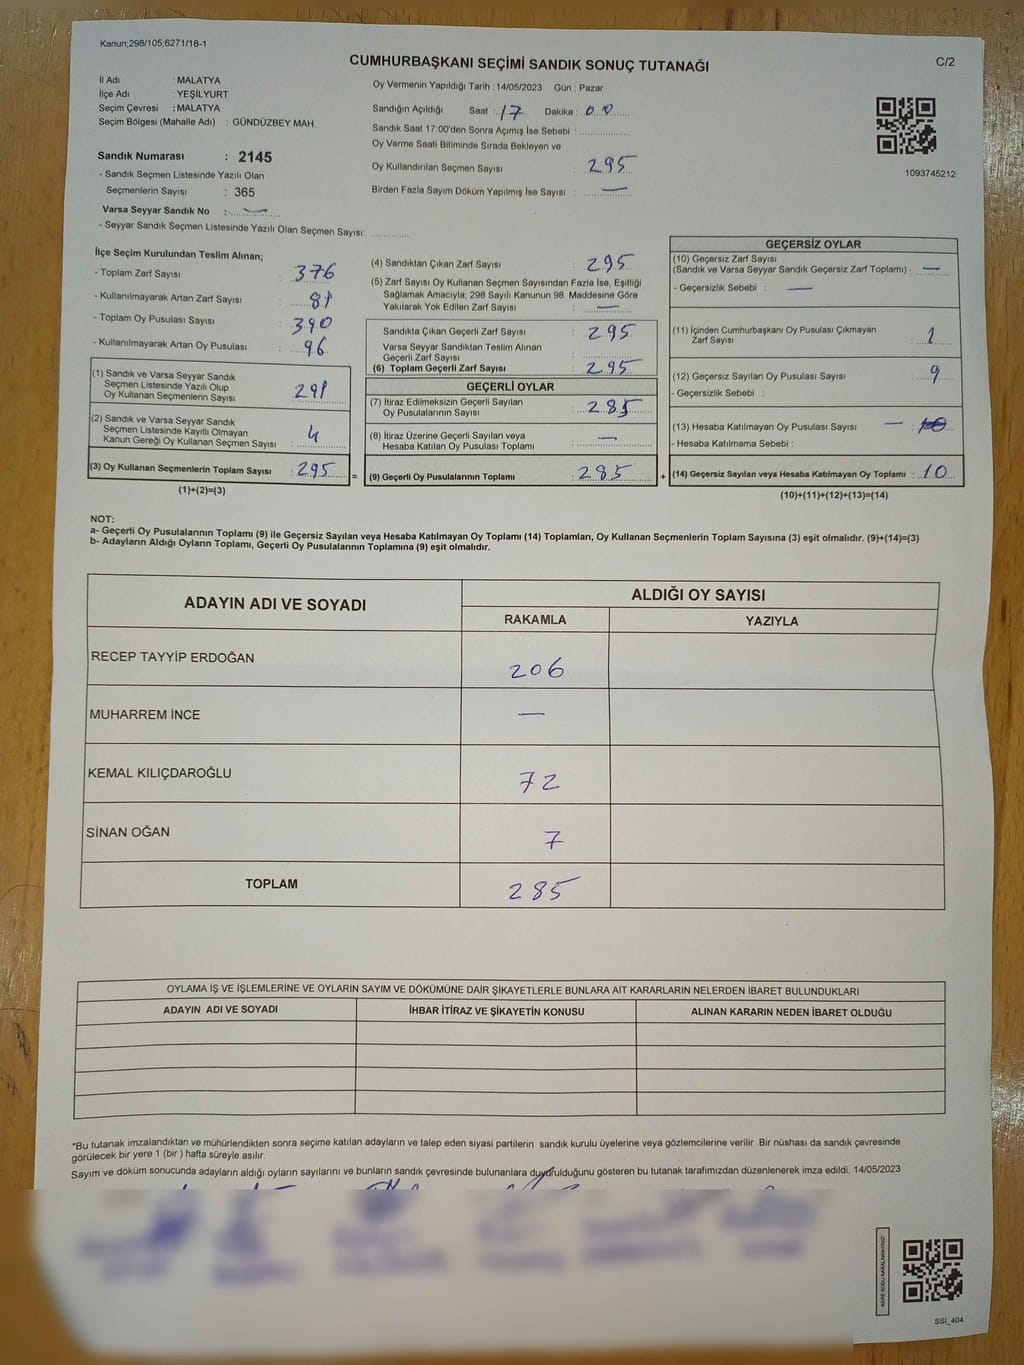 Kanun;298/105;6271/18-1
CUMHURBAŞKANI SEÇİMİ SANDIK SONUÇ TUTANAĞI
C/2
İl Adı : MALATYA
İlçe Adı : YEŞİLYURT
Seçim Çevresi : MALATYA
Seçim Bölgesi (Mahalle Adı) : GÜNDÜZBEY MAH.
Sandık Numarası : 2145
- Sandık Seçmen Listesinde Yazılı Olan
Seçmenlerin Sayısı : 365
Varsa Seyyar Sandık No : —
- Seyyar Sandık Seçmen Listesinde Yazılı Olan Seçmen Sayısı:
Oy Vermenin Yapıldığı Tarih : 14/05/2023 Gün : Pazar
Sandığın Açıldığı Saat : 17 Dakika : 00
Sandık Saat 17:00'den Sonra Açımış İse Sebebi :
Oy Verme Saati Bitiminde Sırada Bekleyen ve
Oy Kullandırılan Seçmen Sayısı : 295
Birden Fazla Sayım Döküm Yapılmış İse Sayısı : —
1093745212
İlçe Seçim Kurulundan Teslim Alınan;
- Toplam Zarf Sayısı : 376
- Kullanılmayarak Artan Zarf Sayısı : 81
- Toplam Oy Pusulası Sayısı : 390
- Kullanılmayarak Artan Oy Pusulası : 96
(1) Sandık ve Varsa Seyyar Sandık
Seçmen Listesinde Yazılı Olup
Oy Kullanan Seçmenlerin Sayısı : 291
(2) Sandık ve Varsa Seyyar Sandık
Seçmen Listesinde Kayıtlı Olmayan
Kanun Gereği Oy Kullanan Seçmen Sayısı : 4
(3) Oy Kullanan Seçmenlerin Toplam Sayısı : 295 =
(1)+(2)=(3)
(4) Sandıktan Çıkan Zarf Sayısı : 295
(5) Zarf Sayısı Oy Kullanan Seçmen Sayısından Fazla İse, Eşitliği
Sağlamak Amacıyla; 298 Sayılı Kanunun 98. Maddesine Göre
Yakılarak Yok Edilen Zarf Sayısı : —
Sandıkta Çıkan Geçerli Zarf Sayısı : 295
Varsa Seyyar Sandıktan Teslim Alınan
Geçerli Zarf Sayısı :
(6) Toplam Geçerli Zarf Sayısı : 295
GEÇERLİ OYLAR
(7) İtiraz Edilmeksizin Geçerli Sayılan
Oy Pusulalarının Sayısı : 285
(8) İtiraz Üzerine Geçerli Sayılan veya
Hesaba Katılan Oy Pusulası Toplamı : —
(9) Geçerli Oy Pusulalarının Toplamı : 285 +
GEÇERSİZ OYLAR
(10) Geçersiz Zarf Sayısı
(Sandık ve Varsa Seyyar Sandık Geçersiz Zarf Toplamı) : —
- Geçersizlik Sebebi : —
(11) İçinden Cumhurbaşkanı Oy Pusulası Çıkmayan
Zarf Sayısı : 1
(12) Geçersiz Sayılan Oy Pusulası Sayısı : 9
- Geçersizlik Sebebi :
(13) Hesaba Katılmayan Oy Pusulası Sayısı —
- Hesaba Katılmama Sebebi :
(14) Geçersiz Sayılan veya Hesaba Katılmayan Oy Toplamı : 10
(10)+(11)+(12)+(13)=(14)
NOT:
a- Geçerli Oy Pusulalarının Toplamı (9) ile Geçersiz Sayılan veya Hesaba Katılmayan Oy Toplamı (14) Toplamları, Oy Kullanan Seçmenlerin Toplam Sayısına (3) eşit olmalıdır. (9)+(14)=(3)
b- Adayların Aldığı Oyların Toplamı, Geçerli Oy Pusulalarının Toplamına (9) eşit olmalıdır.
ADAYIN ADI VE SOYADI
ALDIĞI OY SAYISI
RAKAMLA YAZIYLA
RECEP TAYYİP ERDOĞAN 206
MUHARREM İNCE —
KEMAL KILIÇDAROĞLU 72
SİNAN OĞAN 7
TOPLAM 285
OYLAMA İŞ VE İŞLEMLERİNE VE OYLARIN SAYIM VE DÖKÜMÜNE DAİR ŞİKAYETLERLE BUNLARA AİT KARARLARIN NELERDEN İBARET BULUNDUKLARI
ADAYIN ADI VE SOYADI İHBAR İTİRAZ VE ŞİKAYETİN KONUSU ALINAN KARARIN NEDEN İBARET OLDUĞU
*Bu tutanak imzalandıktan ve mühürlendikten sonra seçime katılan adayların ve talep eden siyasi partilerin sandık kurulu üyelerine veya gözlemcilerine verilir .Bir nüshası da sandık çevresinde
görülecek bir yere 1 (bir ) hafta süreyle asılır.
Sayım ve döküm sonucunda adayların aldığı oyların sayılarını ve bunların sandık çevresinde bulunanlara duyurulduğunu gösteren bu tutanak tarafımızdan düzenlenerek imza edildi. 14/05/2023
KARE KODU KARALAMAYINIZ!
SSI_404